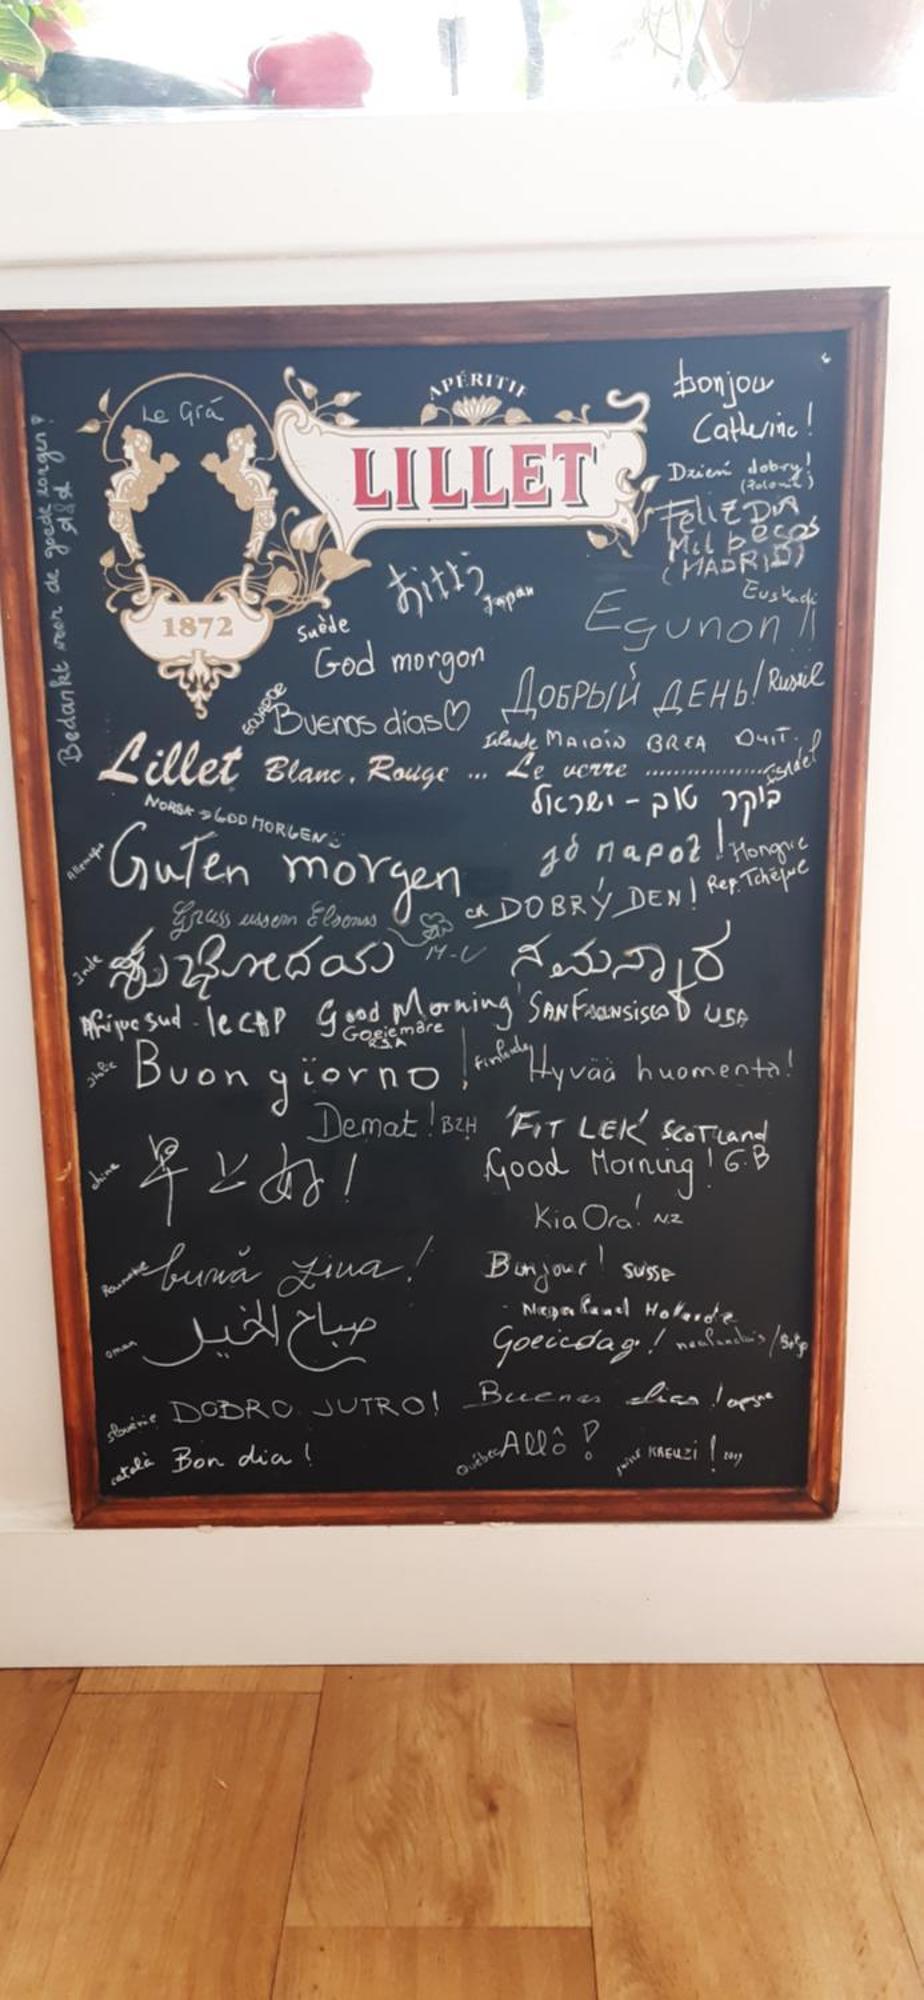 Bedankt voor de goede zorgen!
Le Grá
APÉRITIF
LILLET
1872
bonjour
Catherine!
Dzień dobry!
(Polonia)
FELIZ DIA
Mil besos
(MADRID)
Japan
Euskadi
Egunon!!
Suède
God morgon
ДОБРЫЙ ДЕНЬ! Russie
Buenos dias♡
Islande MAIDIN BREA DUIT.
Lillet Blanc, Rouge ... Le verre ....................
Israel
בוקר טוב - ישראל
NORSK → GOD MORGEN
Allemagne Guten morgen
jó napot! Hongrie
DOBRÝ DEN! Rep. Tchèque
Gruss ussem Elsass
M-L
Inde ಶುಭೋದಯ ನಮಸ್ಕಾರ
Afrique sud - le CAP Good Morning SAN FRANSISCO USA
Goeie more
R.S.A
Italie Buon giorno!
Finlande Hyvää huomenta!
Demat! BZH 'FIT LEK' SCOTLand
Good Morning! G.B
chine
Kia Ora! NZ
Roumanie bună ziua!
Bonjour! SUISSE
oman صباح الخير
Goeiedag! neerlandais
slovénie DOBRO JUTRO!
Buenos dias!
català Bon dia!
Québec Allô!
suisse KREUZI! 2019